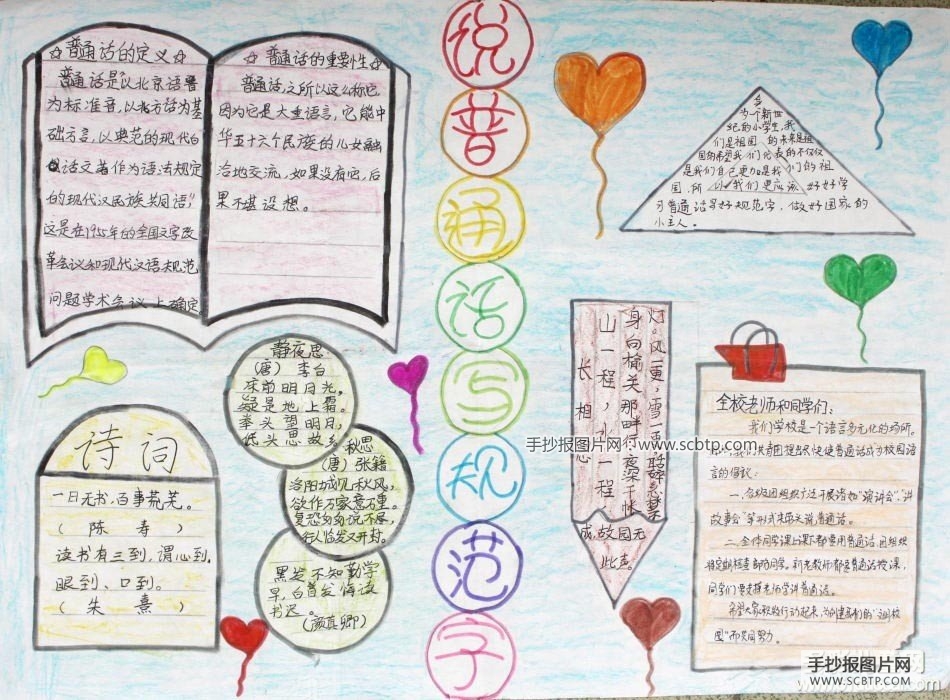 说
普
通
话
写
规
范
字
☆普通话的定义☆
普通话是“以北京语音
为标准音,以北方话为基
础方言,以典范的现代白
话文著作为语法规定
的现代汉民族共同语,”
这是在1955年的全国文字改
革会议和现代汉语规范
问题学术会议上确定
☆普通话的重要性☆
普通话,之所以这么称它,
因为它是大重语言,它能中
华五十六个民族的儿女融
洽地交流,如果没有它,后
果不堪设想。
为一个新世
纪的小学生,我
们是祖国的未来是祖
是我们自己更加是我们的祖
国,所以我们更应该好好学
习普通话写好规范字,做好国家的
小主人。
诗词
一日无书,百事荒芜。
(陈寿)
读书有三到,谓心到,
眼到、口到。
(朱熹)
静夜思
(唐)李白
床前明月光,
疑是地上霜。
举头望明月,
低头思故乡
秋思
(唐)张籍
洛阳城见秋风,
欲作万家意万重。
复恐匆匆说不尽,
行人临发又开封。
黑发不知勤学
早,白首方悔读
书迟。
(颜真卿)
长相思
山一程,水一程
身向榆关那畔夜深千帐
灯。风一更,雪一更
成,故园无
此声。
全校老师和同学们:
我们学校是一个语言多元化的场所。
言的倡议:
一、各班团组织广泛开展诸如“演讲会”、讲
故事会”等形式来带头说普通话。
二、全体同学课上课下都要用普通话,团组织
同学们要支持老师学讲普通话。
希望大家积极行动起来,为创建我们的
园”而共同努力。
手抄报图片网 www.scbtp.com
手抄报图片网
WWW.SCBTP.COM